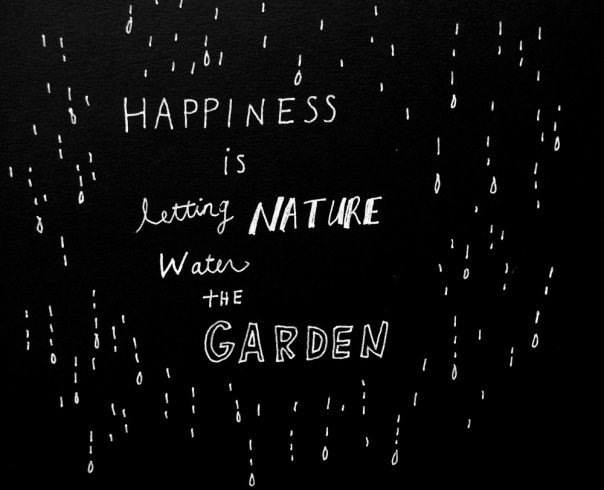 HAPPINESS
is
letting NATURE
Water
THE
GARDEN